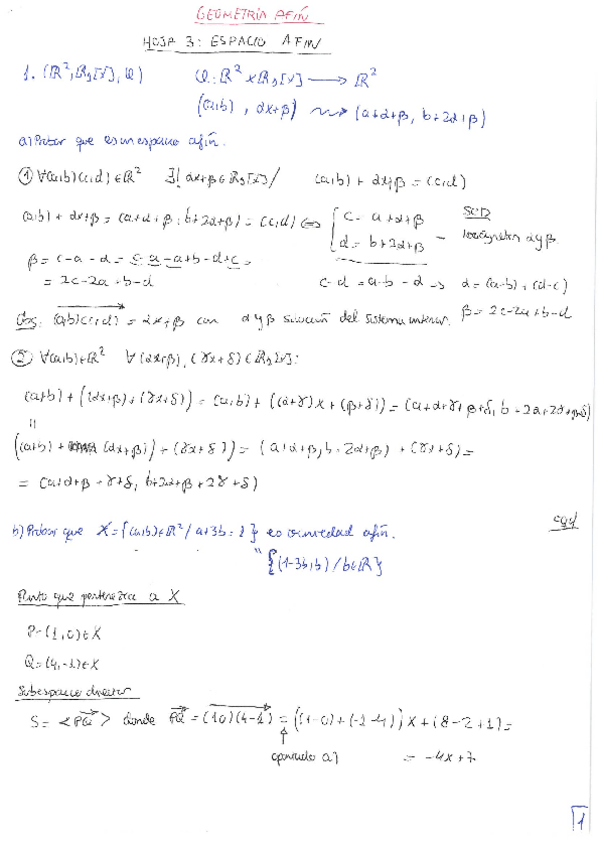 GEOMETRÍA AFÍN
HOJA 3: ESPACIO AFIN
1. (ℝ², ℝ₁[x], φ) φ: ℝ² × ℝ₁[x] ⟶ ℝ²
(a,b), αx+β ⇝ (a+α+β, b+2α+β)
a) Probar que es un espacio afín.
① ∀(a,b)(c,d) ∈ ℝ² ∃! αx+β ∈ ℝ₁[x] / (a,b) + αx+β = (c,d)
(a,b) + αx+β = (a+α+β, b+2α+β) = (c,d) ⇔ { c = a+α+β
d = b+2α+β – SCD incógnitas α y β
β = c-a-α = c-a-a+b-d+c =
= 2c-2a+b-d c-d = a-b-α → α = (a-b)+(d-c)
Obs: (a,b)(c,d) = αx+β con α y β solución del sistema anterior. β = 2c-2a+b-d
② ∀(a,b) ∈ ℝ² ∀(αx+β), (γx+δ) ∈ ℝ₁[x]:
(a,b) + ((αx+β)+(γx+δ)) = (a,b) + ((α+γ)x+(β+δ)) = (a+α+γ+β+δ, b+2α+2γ+β+δ)
=
((a,b) + (αx+β)) + (γx+δ) = (a+α+β, b+2α+β) + (γx+δ) =
= (a+α+β+γ+δ, b+2α+β+2γ+δ)
cqd
b) Probar que X = {(a,b) ∈ ℝ² / a+3b = 1} es variedad afín.
" {(1-3b,b) / b∈ℝ}
Punto que pertenezca a X
P=(1,0) ∈ X
Q=(4,-1) ∈ X
Subespacio director
S = <PQ> donde PQ = (1,0)(4,-1) = ((1-0)+(-1-4))x + (8-2+1) =
apartado a) = -4x+7
1